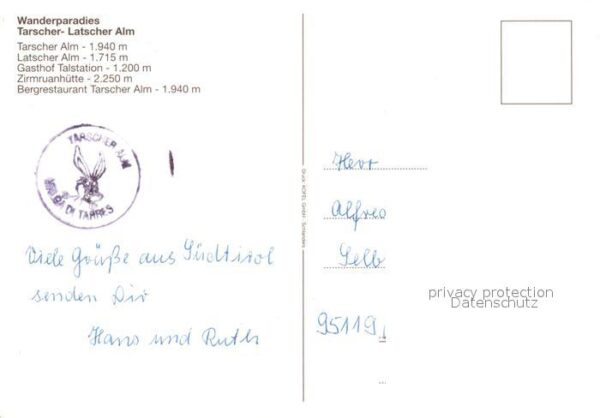 Wanderparadies
Tarscher- Latscher Alm
Tarscher Alm - 1.940 m
Latscher Alm - 1.715 m
Gasthof Talstation - 1.200 m
Zirmruanhütte - 2.250 m
Bergrestaurant Tarscher Alm - 1.940 m
TARSCHER ALM
MALGA DI TARRES
Viele Grüße aus Südtirol
senden Dir
Hans und Ruth
Druck: HOFEL GmbH - Schlanders
Herr
Alfred
Selb
privacy protection
Datenschutz
95119